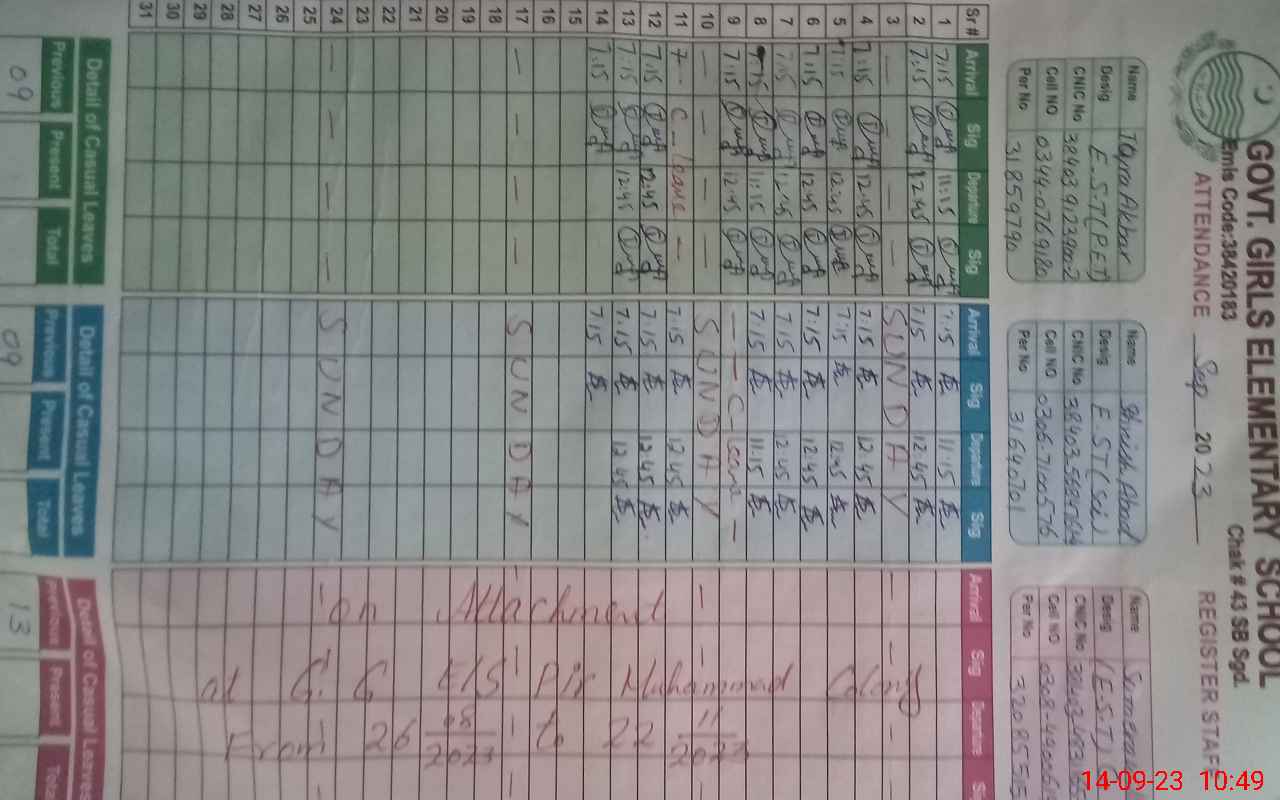 GOVT. GIRLS ELEMENTARY SCHOOL
Emis Code:38420183 Chak # 43 SB Sgd.
ATTENDANCE Sep 2023 REGISTER STAFF
Name Tayra Akbar
Desig E.S.T (P.E.T)
CNIC No
Cell NO 0344-0769180
Per No 31859790
Name
Desig E.ST (Sci)
CNIC No
Cell NO 03057100576
Per No 31640701
Name
Desig (E.S.T)
CNIC No
Cell NO
Per No
Sr# Arrival Sig Departure Sig Arrival Sig Departure Sig Arrival Sig Departure
1 7:15 11:15 7:15 11:15
2 7:15 12:45 7:15 12:45
3 — — — — SUNDAY
4 7:15 12:45 7:15 12:45
5 7:15 12:45 7:15 12:45
6 7:15 12:45 7:15 12:45
7 7:15 12:45 7:15 12:45
8 7:15 11:15 7:15 11:15
9 7:15 12:45 — — C-Leave —
10 — — — — SUNDAY
11 C-Leave — 7:15 12:45
12 7:15 12:45 7:15 12:45
13 7:15 12:45 7:15 12:45
14 7:15 7:15
15
16
17 — — — — SUNDAY
18
19
20
21
22
23
24 — — — — SUNDAY
25
26
27
28
29
30
31
on Attachment
at G. G E/S Pir Muhammad Colony
From 26 08/2023 to 22 11/2023
Detail of Casual Leaves Detail of Casual Leaves Detail of Casual Leaves
Previous Present Total Previous Present Total Previous Present Total
09 09 13
14-09-23 10:49